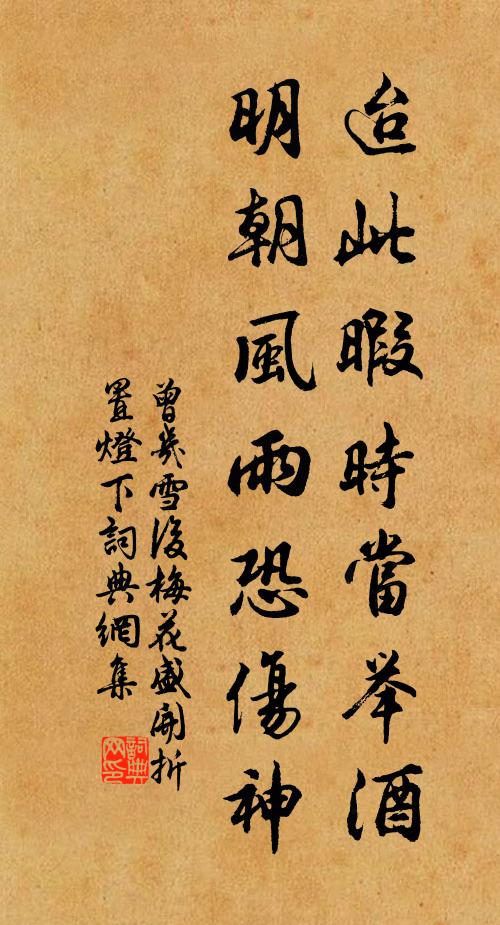 迨此暇時當举酒
明朝風雨恐傷神
曾幾雪後梅花盛開折
置燈下詞典網集
詞典网印